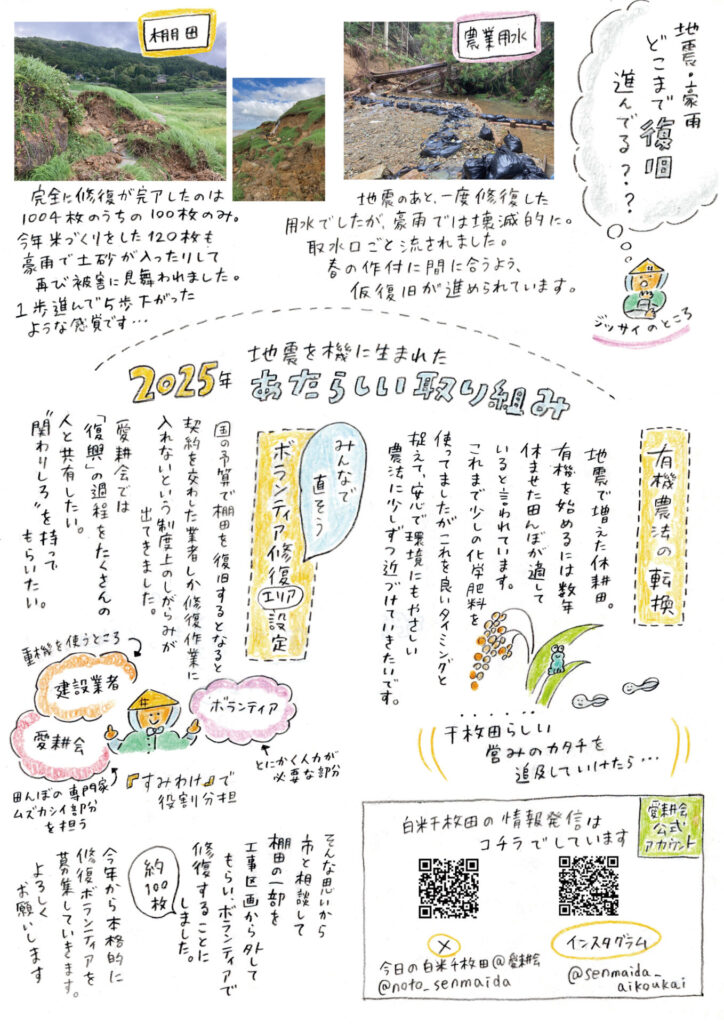 地震・豪雨
どこまで復旧
進んでる???
ジッサイのところ
棚田
完全に修復が完了したのは
1004枚のうちの100枚のみ。
今年米づくりをした120枚も
豪雨で土砂が入ったりして
再び被害に見舞われました。
1歩進んで5歩下がった
ような感覚です…
農業用水
地震のあと、一度修復した
用水でしたが、豪雨では壊滅的に。
取水口ごと流されました。
春の作付に間に合うよう、
仮復旧が進められています。
地震を機に生まれた
2025年 あたらしい取り組み
有機農法の転換
地震で増えた休耕田。
有機を始めるには数年
休ませた田んぼが適して
いると言われています。
これまで少しの化学肥料を
使ってましたがこれを良いタイミングと
捉えて、安心で環境にもやさしい
農法に少しずつ近づけていきたいです。
千枚田らしい
営みのカタチを
追及していけたら…
みんなで
直そう
ボランティア修復エリア設定
国の予算で棚田を復旧するとなると
契約を交わした業者しか修復作業に
入れないという制度上のしがらみが
出てきました。
愛耕会では
「復興」の過程をたくさんの
人と共有したい。
"関わりしろ"を持って
もらいたい。
重機を使うところ
建設業者
愛耕会
ボランティア
田んぼの専門家
ムズカシイ部分
を担う
『すみわけ』で
役割分担
とにかく人力が
必要な部分
そんな思いから
市と相談して
棚田の一部を
工事区画から外して
もらい、ボランティアで
修復することに
しました。
約100枚
今年から本格的に
修復ボランティアを
募集していきます。
よろしく
お願いします
愛耕会
公式
アカウント
白米千枚田の情報発信は
コチラでしています
X
今日の白米千枚田@愛耕会
@noto_senmaida
インスタグラム
@senmaida_
aikoukai